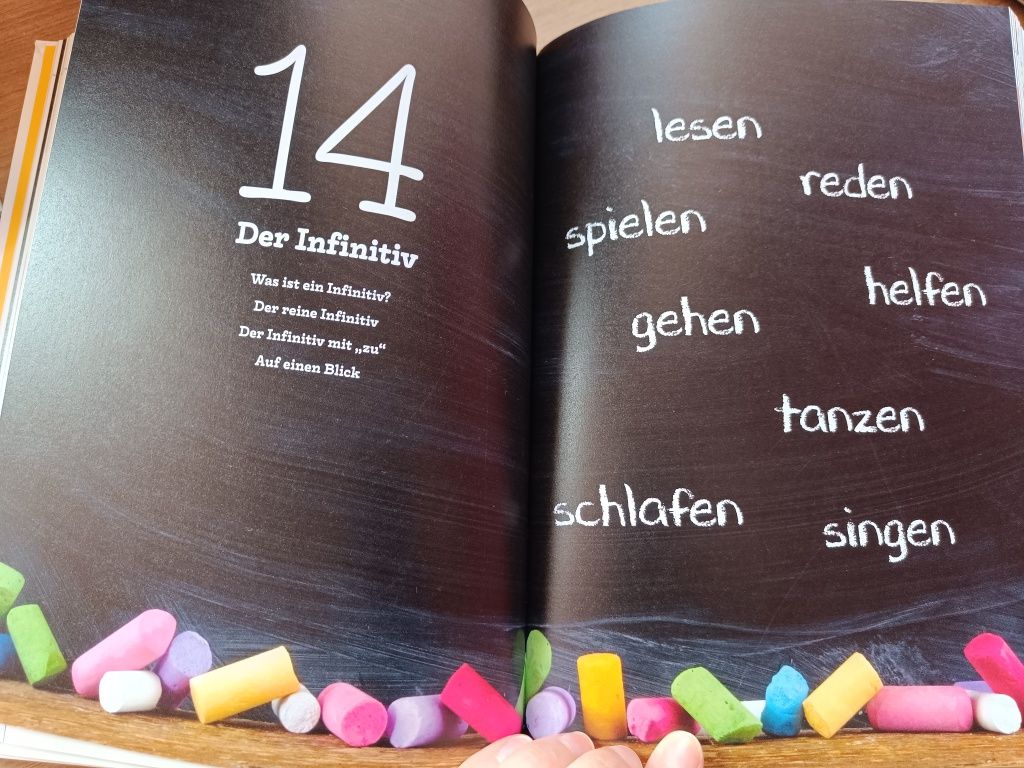 14
Der Infinitiv
Was ist ein Infinitiv?
Der reine Infinitiv
Der Infinitiv mit „zu“
Auf einen Blick
lesen
reden
spielen
helfen
gehen
tanzen
schlafen
singen